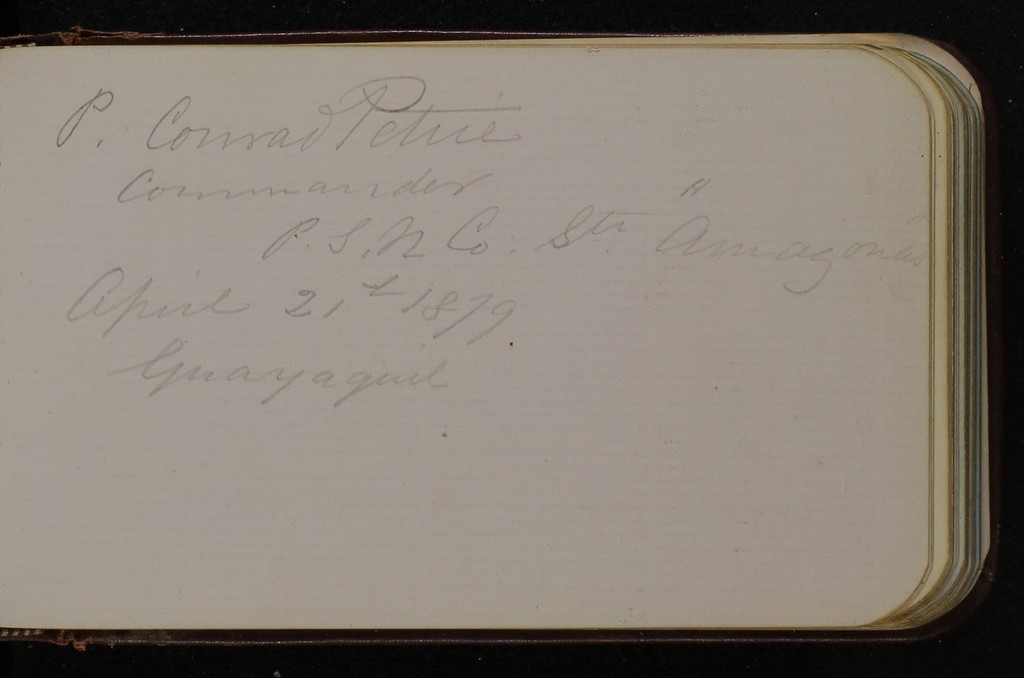 P. Conrad Petrie
Commander
P. S. N Co. Str "Amazonas"
April 21st 1879
Guayaquil